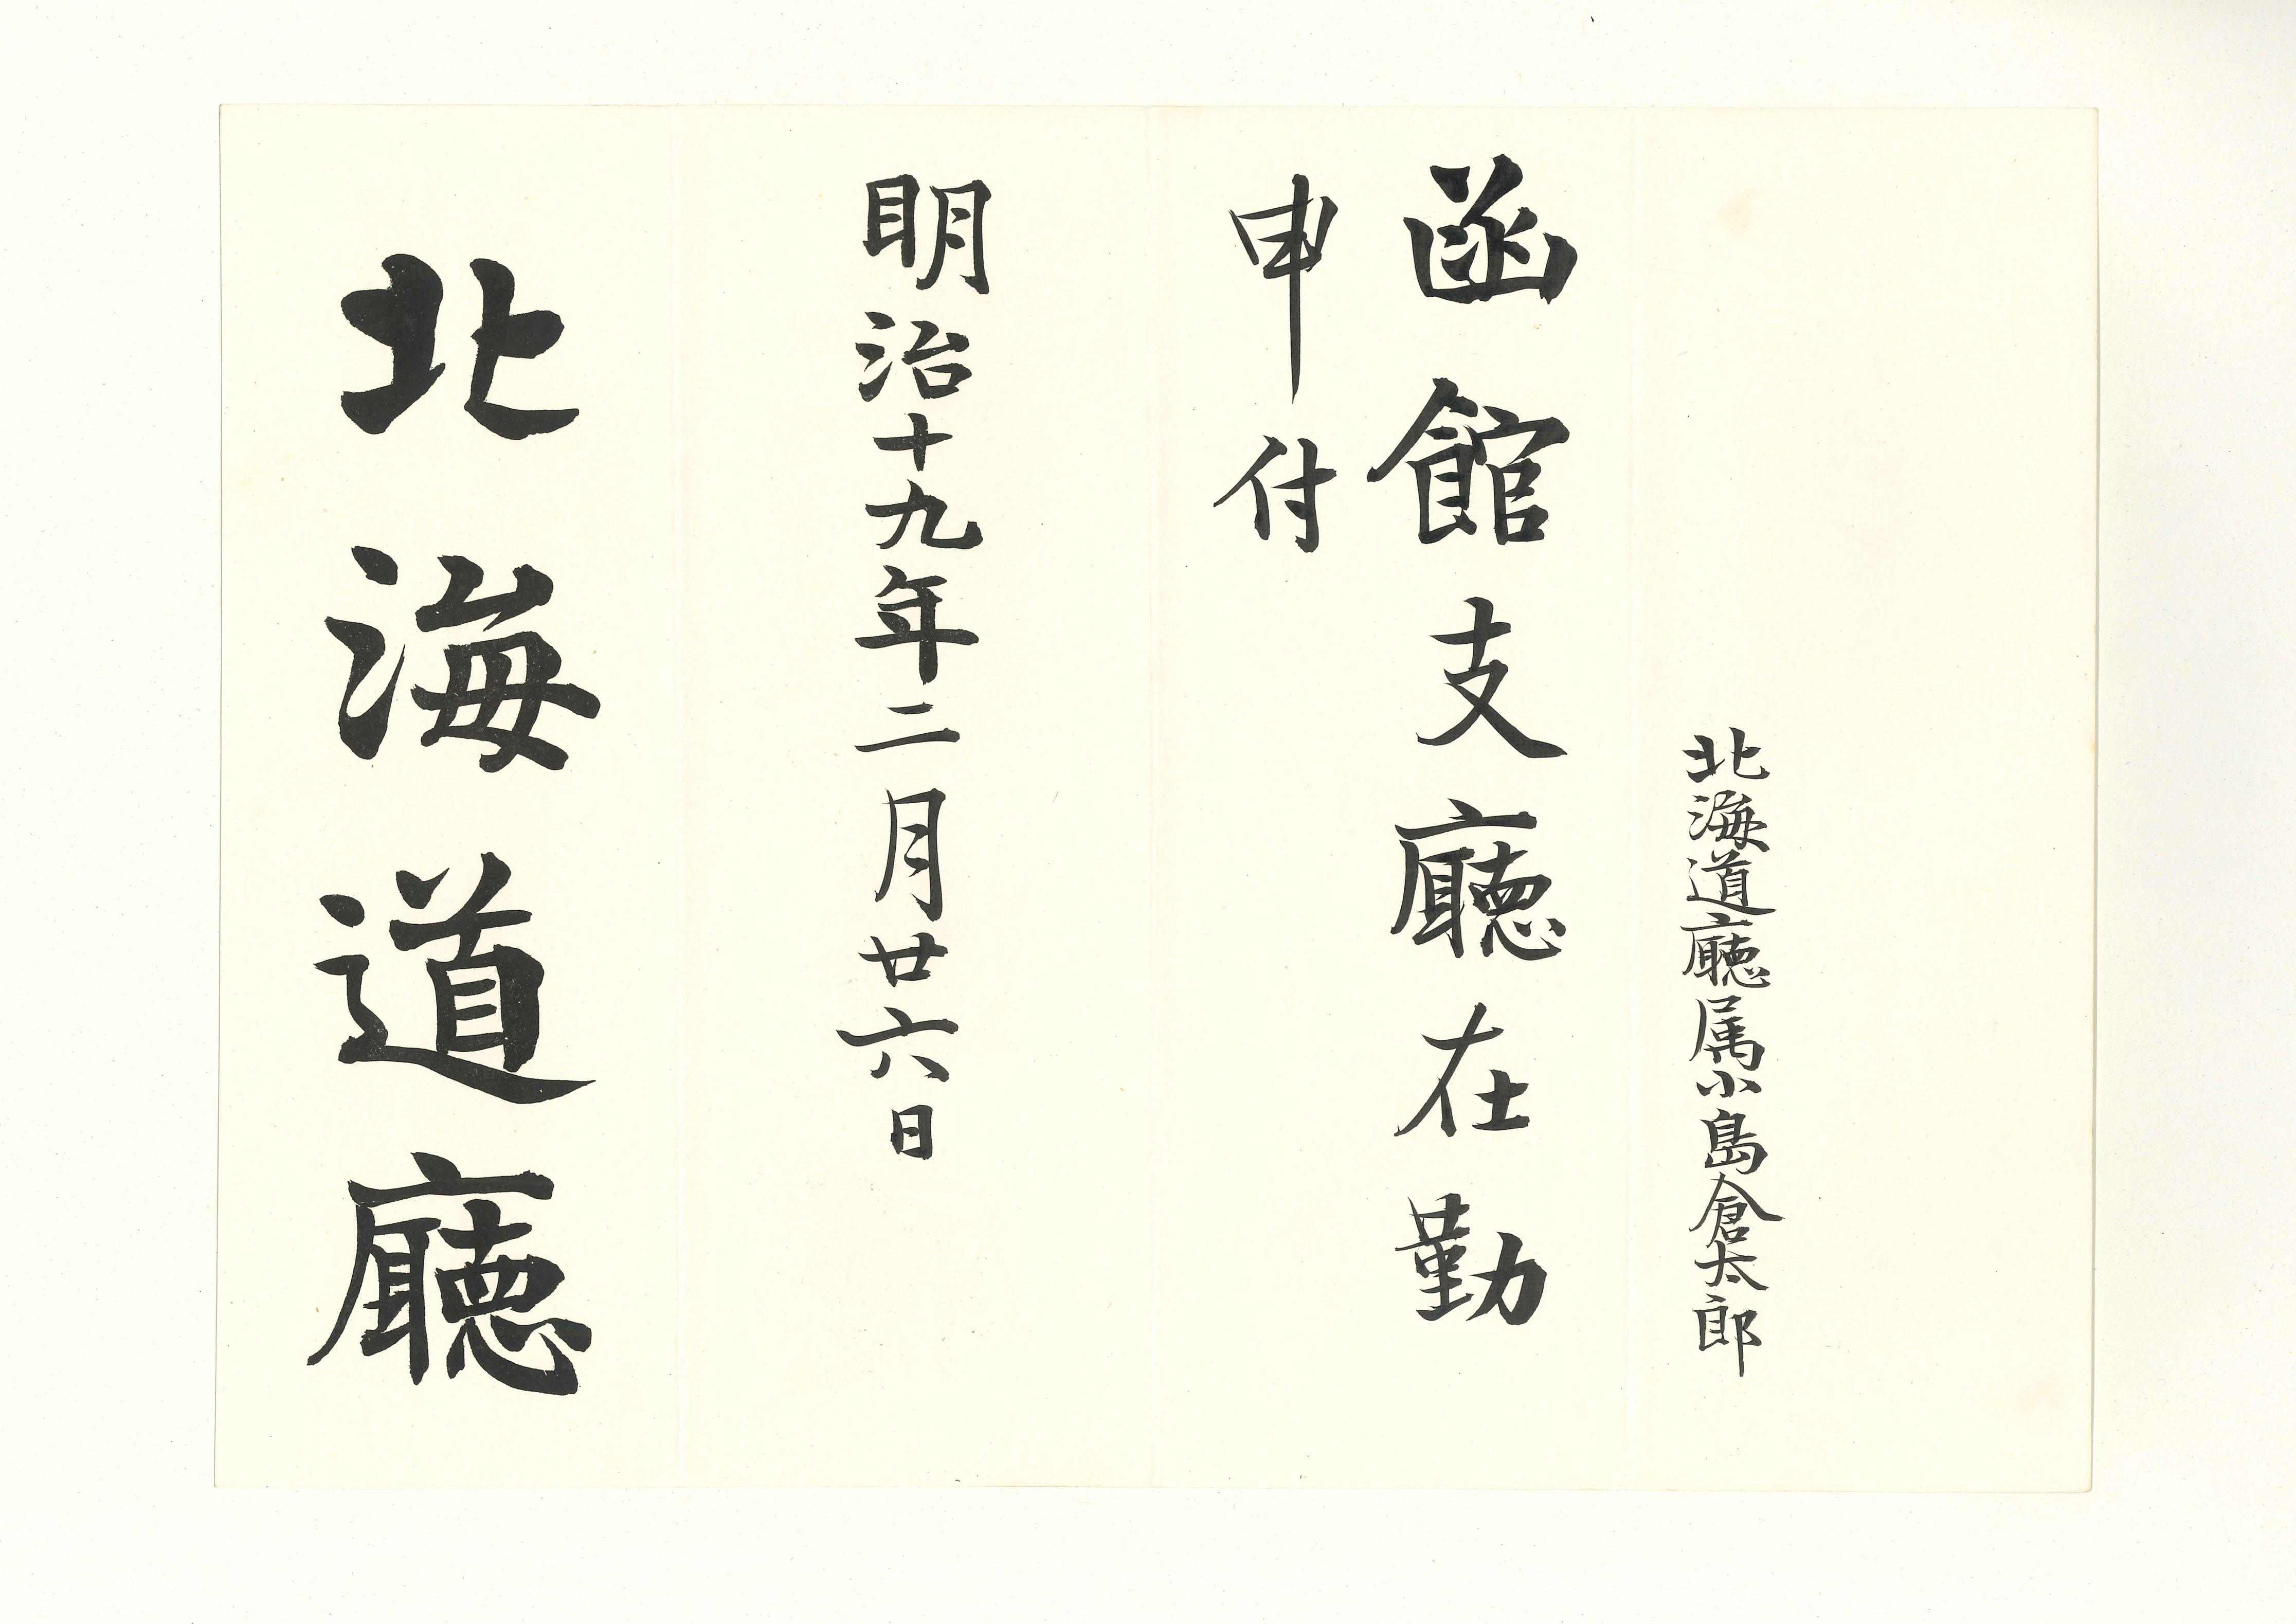 北海道廳属小島倉太郎
函館支廳在勤
申付
明治十九年二月廿六日
北海道廳